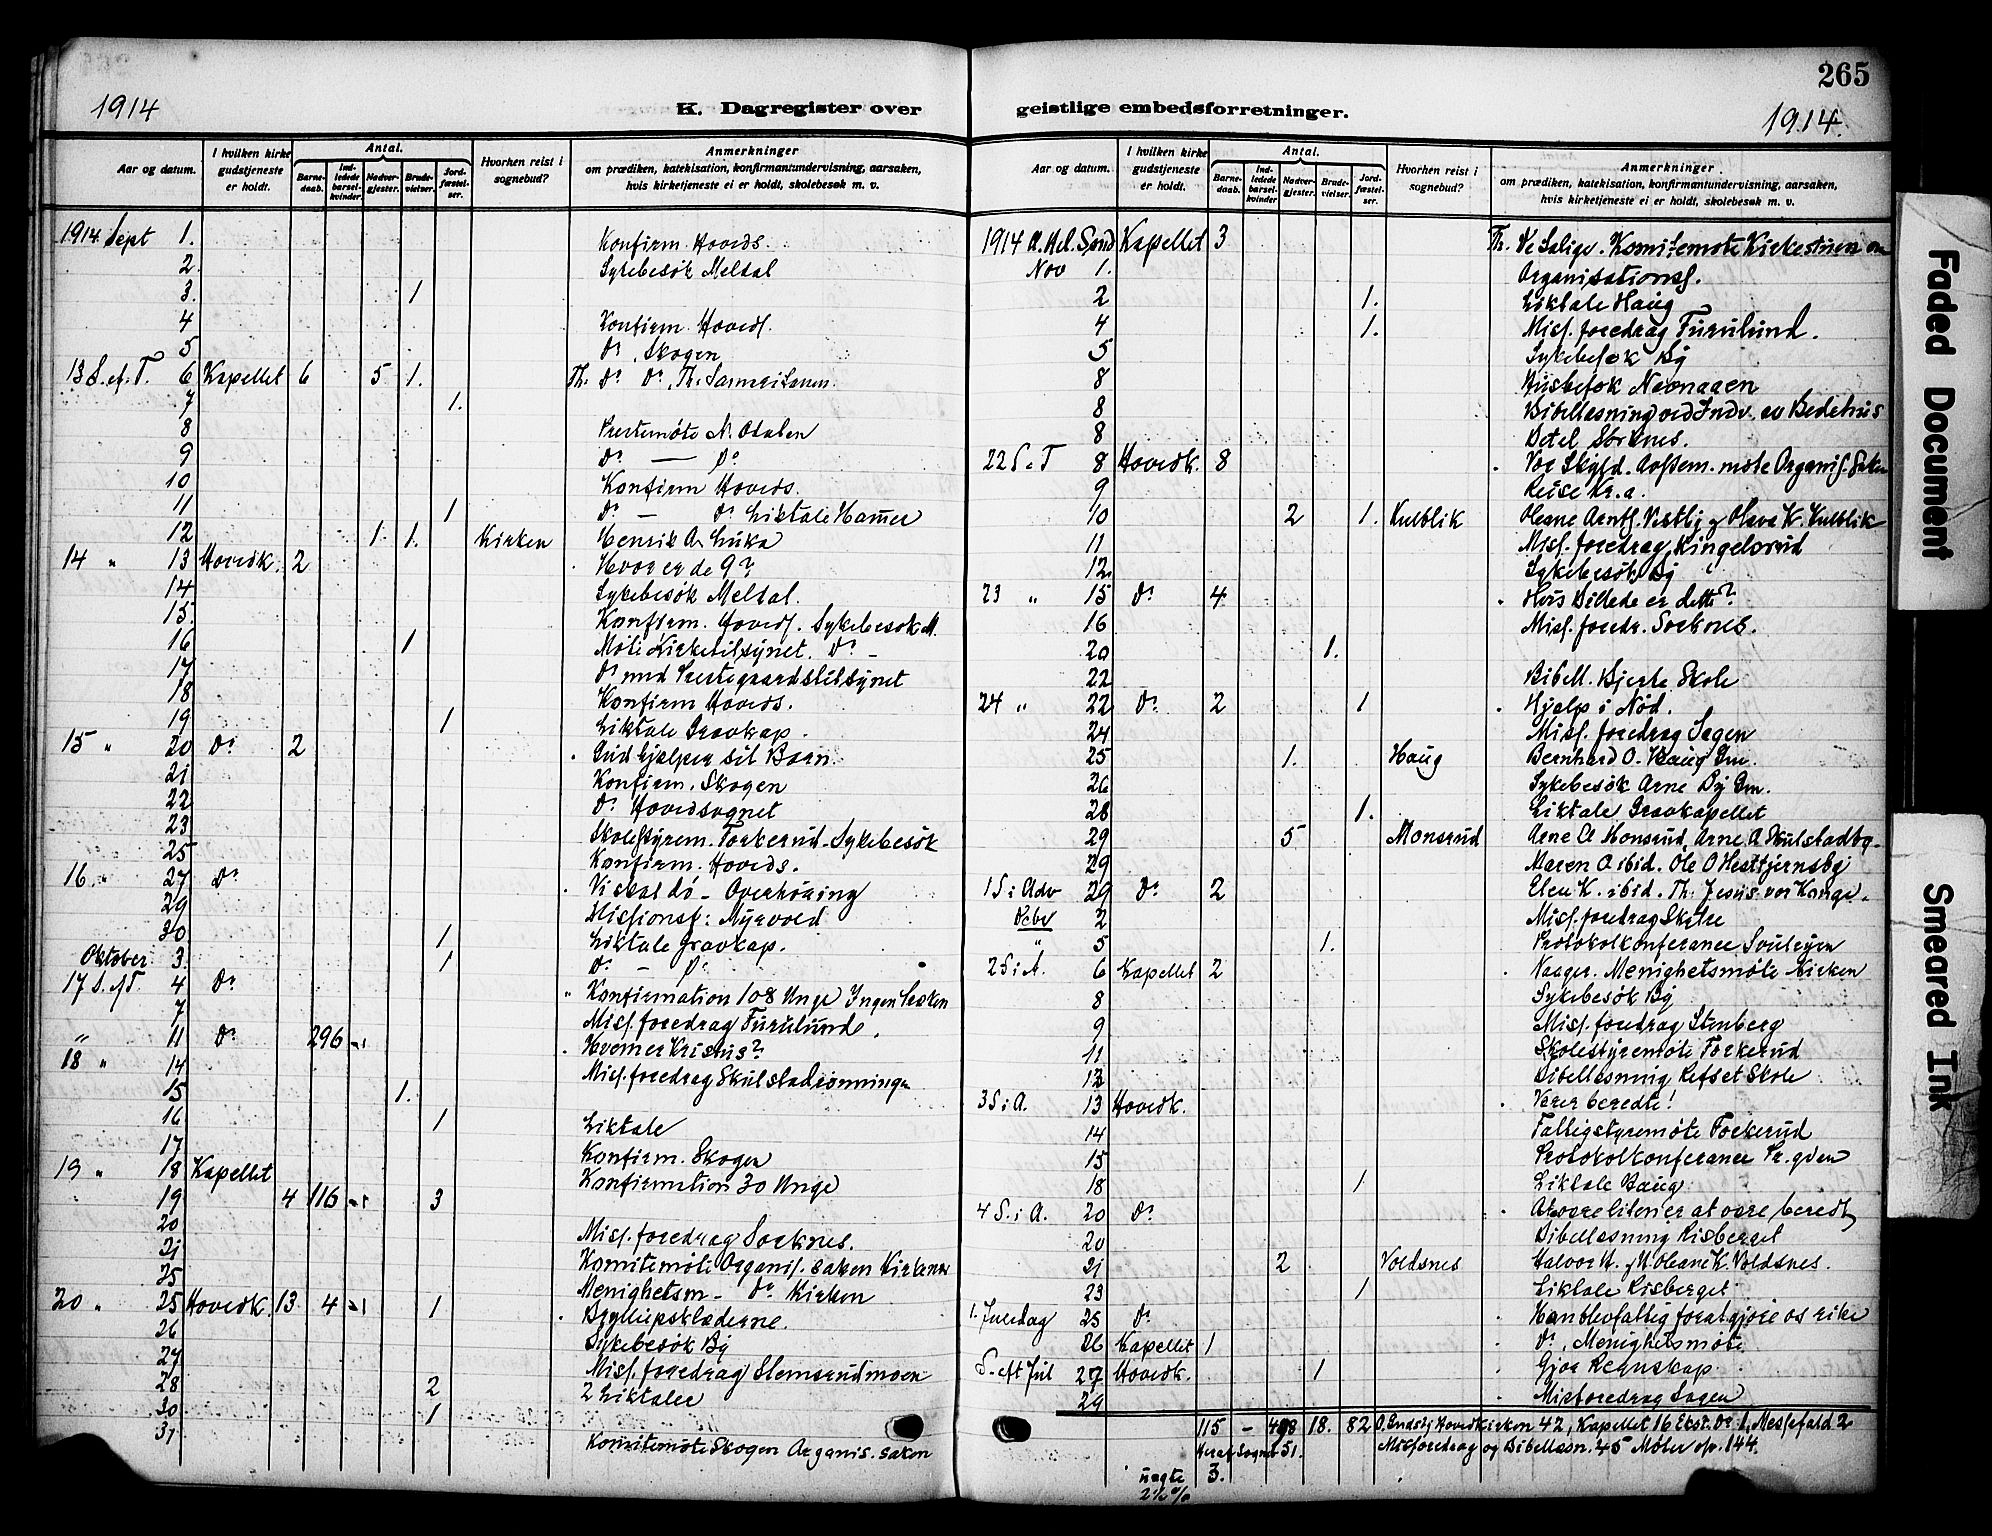 265
1914
K. Dagregister over geistlige embedsforretninger.
1914.
Aar og datum. I hvilken kirke gudstjeneste er holdt. Antal. Barnedaab. Indledede barselkvinder. Nadvergjester. Brudevielser. Jordfæstelser. Hvorhen reist i sognebud? Anmerkninger om prædiken, katekisation, konfirmantundervisning, aarsaken, hvis kirketjeneste ei er holdt, skolebesøk m. v.
1914 Sept 1. Konfirm. Hoveds.
2. Sykebesøk Meldal
3. 1
4 Konfirm. Hoveds.
5 Do. Skogen
13 S. ef. T. 6 Kapellet 6 5 1. Th. Do Do, Th. Samaritanen.
7 1.
8 Prestemøte N. Odalen
9 Do — Do
10 Konfirm Hoveds.
11 1 Do — Do Liktale Hamer
12 1. 1. Kirken Henrik A.
14 " 13 Hovedk. 2 Hvor er de 9?
14 Sykebesøk Meldal.
15. Konfirm. Hoveds. Sykebesøk M.
16 1 Møte Kirketilsynet. Do -
17 Do med Prestegaardstilsynet
18 Konfirm Hoveds.
19 1 Liktale Gravkap.
15 " 20 Do 2 Gud hjælper sit Barn.
21 Konfirm. Skogen
22 Do Hovedsognet
23 Skolestyrem. Torkerud. Sykebesøk
25 Konfirm. Hoveds.
16 " 27 Do Vi skal dø - Overhøring
29 Missionsf: Myrvold
30 1 Liktale gravkap.
Oktober 3. 1 Do — Do
17 S. ef T. 4 Do " Konfirmation 108 Unge Ingen
7 Misf. foredrag Furulunde.
" 11 Do 296 Hvem er Kristus?
18 " 14 Misf. foredrag Skulstadrønningen
15 1.
16 1 Liktale
17 Konfirm. Skogen
19 " 18 Kapellet Konfirmation 30 Unge
19 4 116 3
20 Misf. foredrag Sorknes.
21 Komitemøte Organis. saken Kirkenær
25 Menighetsm - Do Kirken
20 " 25 Hovedk. 13 4 1 Bryllupsklæderne.
26 Sykebesøk By
27 Misf. foredrag Stemsrudmoen
28 2 2 Liktaler
30 1
31 Komitemøte Skogen Organis. saken
Aar og datum. I hvilken kirke gudstjeneste er holdt. Antal. Barnedaab. Indledede barselkvinder Nadvergjester. Brudevielser. Jordfæstelser. Hvorhen reist i sognebud? Anmerkninger om prædiken, katekisation, konfirmantundervisning, aarsaken, hvis kirketjeneste ei er holdt, skolebesøk m. v.
1914 A. Hel. Sønd Kapellet 3 Th. De Salige. Komitemøte Kirkestuen om
Nov 1. Organisationsf.
2 1. Liktale Haug
4 1. Misf. foredrag Furulund.
5 Sykebesøk By
8 Husbesøk Nesnaaen
8 Bibellæsning ved Indv. av Bedehus
8 Betel Sorknes.
22 S. e T 8 Hovedk. 8 Vor Skyld. Avstem. møte Organis. Saken
9 Reise Kr.a.
10 2 1. Kulblik Oleane Arntf. Vestby og Olava K. Kulblik
11 Misf. foredrag Ringelsrud
12 Sykebesøk By
23 " 15 Do 4 Hvis Billede er dette?
16 Misf. foredr. Sorknes.
20 1.
22 Bibell. Bjerke Skole
24 " 22 Do 2 1 Hjælp i Nød.
24 Misf. foredrag Sagen
25 1. Haug Bernhard O. Haug Gm.
26 Sykebesøk Arne By Gm.
28 1. Liktale Gravkapellet
29 5 Monsrud Arne A Monsrud, Arne A Skulstadby -
29 Maren O ibid. Ole O Hestbjernsby
1 S i Adv 29 Do 2 Elen K. ibid. Th. Jesus vor Konge.
Decbr 2 Misf. foredrag Skatre
" 5 1. Protokolkonferance
2 S i A. 6 Kapellet 2 Vaager. Menighetsmøte Kirken
8 Sykebesøk By
9 Misf. foredrag Stenberg
11 Skolestyremøte Torkerud
12 Bibellæsning Refset Skole
3 S i A. 13 Hovedk. Værer beredte!
14 Fattigstyremøte Torkerud
15 Protokolkonferance Pr.gden
18 1 Liktale Haug
4 S. i A. 20 Do At være liten er at være beredt
20 Bibellæsning Risberget
21 2 Voldsnes Halvor H. og Oleane K. Voldsnes.
23 1 Liktale Risberget
1. Juledag 25 Do Han blev fattig for at gjøre os rike
26 Kapellet 1 Do, Menighetsmøte
S. eft Jul 27 Hovedk. 1 Gjør Regnskap
29 Misforedrag Sagen
115 - 498 18. 82 O. Gudstj Hovedkirken 42, Kapellet 16 Ekst. Do 1, Messefald 2
Herav Sogneb 51. Misforedrag og Bibellæsn. 45 Møter op. 144.
uægte 3.
2½ %
Faded Document
Smeared Ink